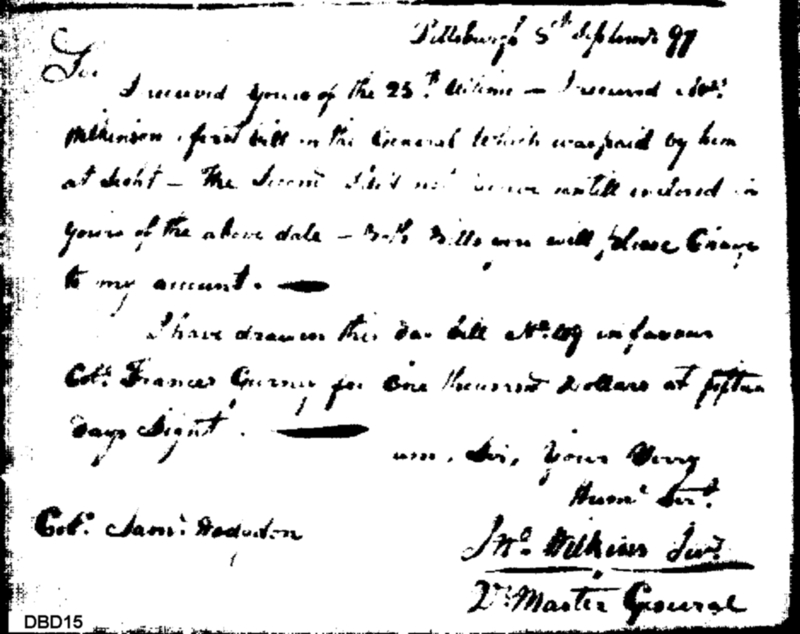 Pittsburgh 5th September 97
Sir
I received yours of the 25th Ultimo — I received
Wilkinson first bill on the General which was paid by him
at Sight — The Second I did not receive untill inclosed in
yours of the above date — Both Bills you will please Charge
to my account.
I have drawn this day bill No. 109 in favour
Colo. Frances Gurney for One thousand Dollars at fifteen
days Sight.
am, Sir, Your Very
Humle Sert.
Jno. Wilkins Junr.
Colo. Saml. Hodgdon
Qr. Master General
DBD15